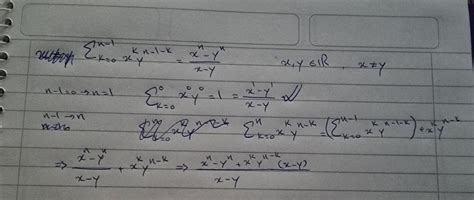 ∑_{k=0}^{n-1} x^k y^{n-1-k} = \frac{x^n - y^n}{x-y}   x,y ∈ ℝ , x ≠ y
n-1=0 → n=1   ∑_{k=0}^{0} x^0 y^0 = 1 = \frac{x^1 - y^1}{x-y} ✓
n-1 → n   ∑_{k=0}^{n} x^k y^{n-k} = (∑_{k=0}^{n-1} x^k y^{n-1-k}) + x^k y^{n-k}
⇒ \frac{x^n - y^n}{x-y} + x^k y^{n-k} ⇒ \frac{x^n - y^n + x^k y^{n-k} (x-y)}{x-y}